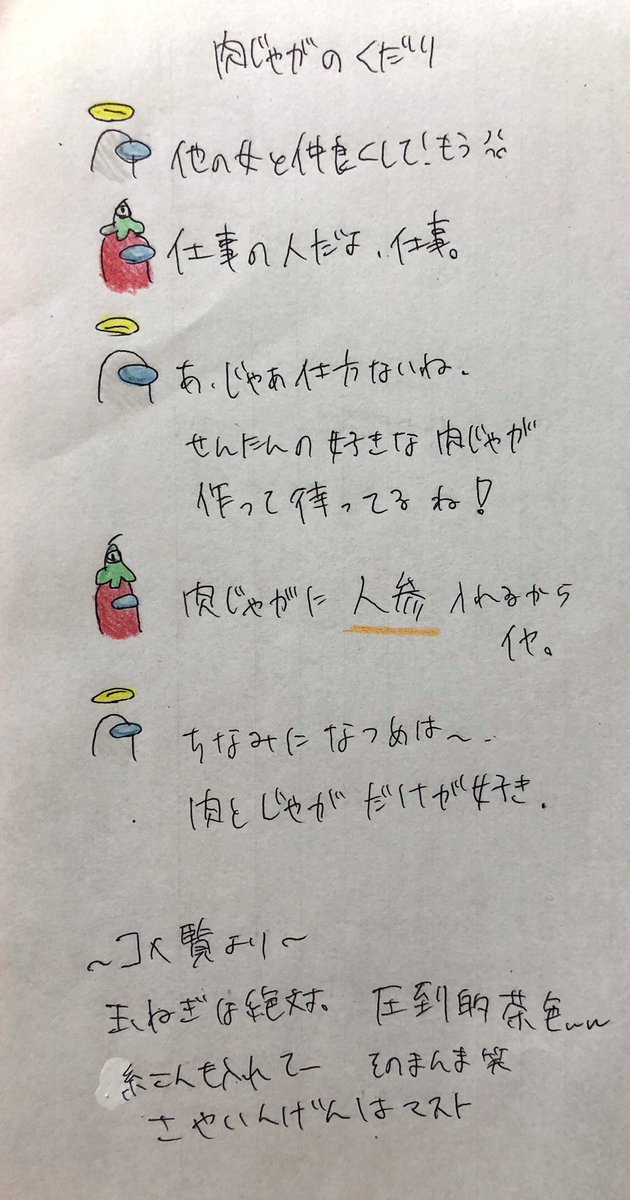 肉じゃがのくだり
他の女と仲良くして!もう
仕事の人だよ、仕事。
あ、じゃあ仕方ないね。
せんたんの好きな肉じゃが
作って待ってるね!
肉じゃがに人参入れるから
イヤ。
ちなみになつめは〜
肉とじゃがだけが好き.
〜コメ覧より〜
玉ねぎは絶対。 圧到的茶色ww
糸こんも入れてー そのまんま笑
さやいんげんはマスト